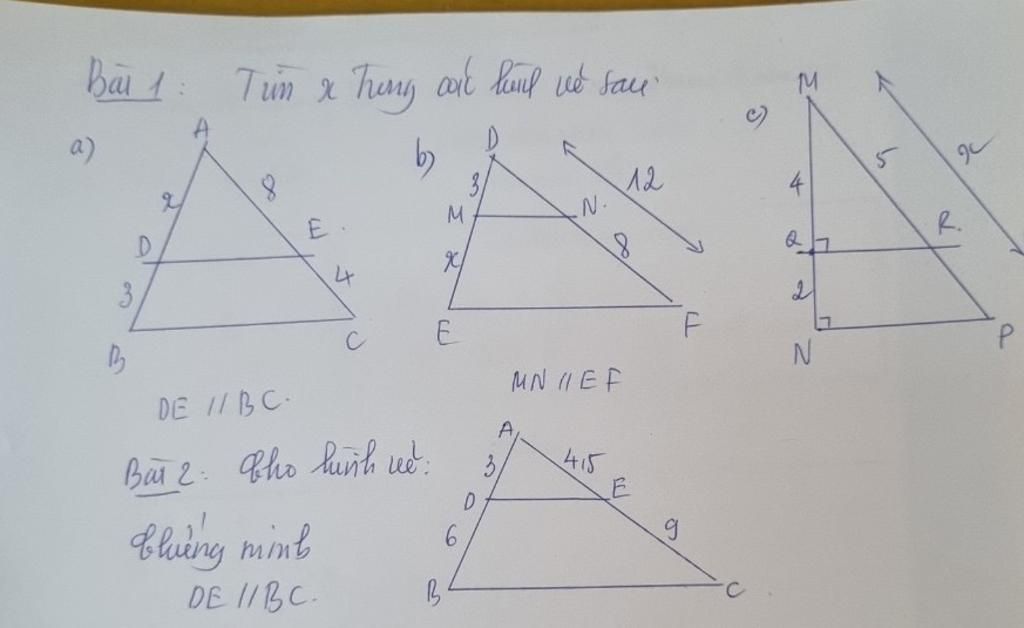 Bài 1: Tìm x Trong các hình vẽ sau
a)
A
x
8
D
E.
3
4
B
C
DE // BC.
b)
D
3
12
M
N.
x
8
E
F
MN // EF
c)
M
4
5
x
Q
R.
2
N
P
Bài 2: Cho hình vẽ:
Chứng minh
DE // BC.
A
3
4,5
D
E
6
9
B
C